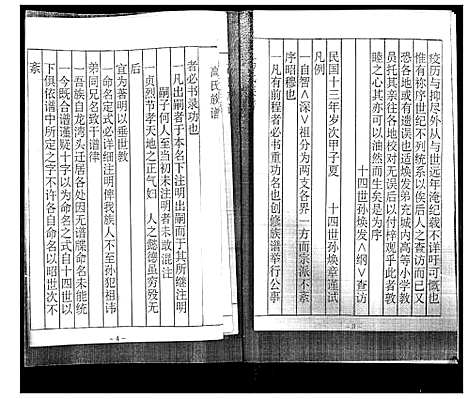 疫历与地尽外从与世远年淹纪载不详吁可慨也
惟有祢序世纪不列统系以俟后人之查访而已又
恐各地或有遗误也适焕发弟充城内高等小学教
员托其在各地校对无误后以付梓观乎此者敦
睦之心其亦可以油然而生矣是为序
十四世孙焕章∧纲∨查访
民国十三年岁次甲子夏 十四世孙焕章谨试
凡例
一自智∧深∨祖分为两支各界一方而宗派不紊
序昭穆也
一凡有前程者必书重功名也创修族谱举行公事
- 3 -
高氏族谱
者必书录功也
一凡出嗣者于本名下注明出嗣而于其所继注明
嗣子何人至当初未注明者未敢混注
一贞烈节孝天地之正气妇人之懿德虽穷殁无
后
宜为著明以垂世教
一命名定式必详细注明俾我族人不至孙犯祖讳
弟同兄名致干谱律
一吾族自龙湾头迁居各处因无谱牒命名未能统
一今既合谱谨疑十字以为命名之式自十四世以
下俱依谱中所定之字不许各自命名以昭世次不
紊
- 4 -